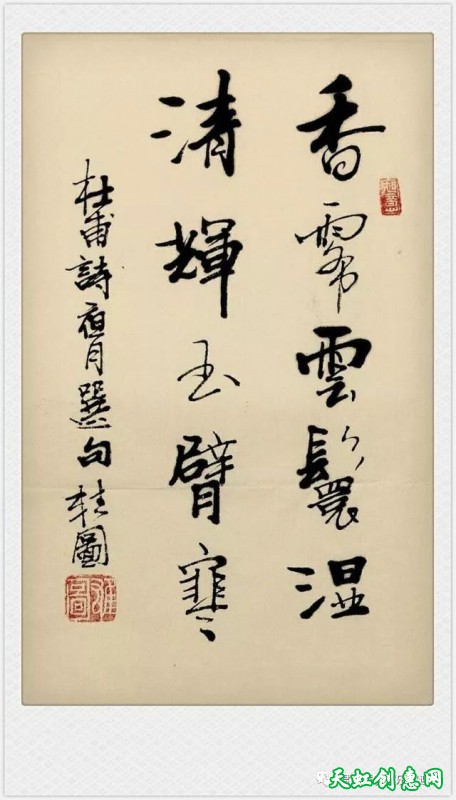 香霧雲鬟湿
清輝玉臂寒
杜甫詩夜月選句圖
天虹创意网